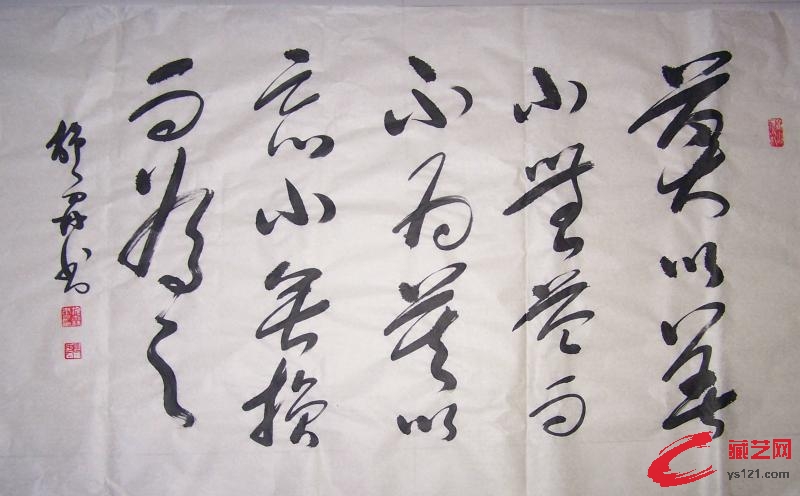 莫以善
小無益而
不为莫以
恶小無損
而為之
书
藏艺网
ys121.com